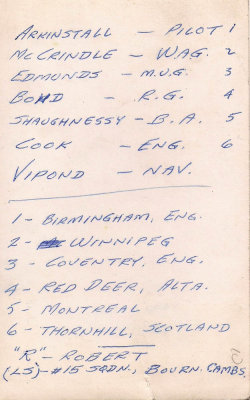 ARKINSTALL – PILOT 1
MCCRINDLE – W.A.G. 2
EDMUNDS – M.U.G. 3
BOND – R.G. 4
SHAUGHNESSY – B.A. 5
COOK – ENG. 6
VIPOND – NAV.
1 – BIRMINGHAM, ENG.
2 – WINNIPEG
3 – COVENTRY, ENG.
4 – RED DEER, ALTA.
5 – MONTREAL
6 – THORNHILL, SCOTLAND
"R" – ROBERT
(LS) – #15 SQDN., BOURN. CAMBS.